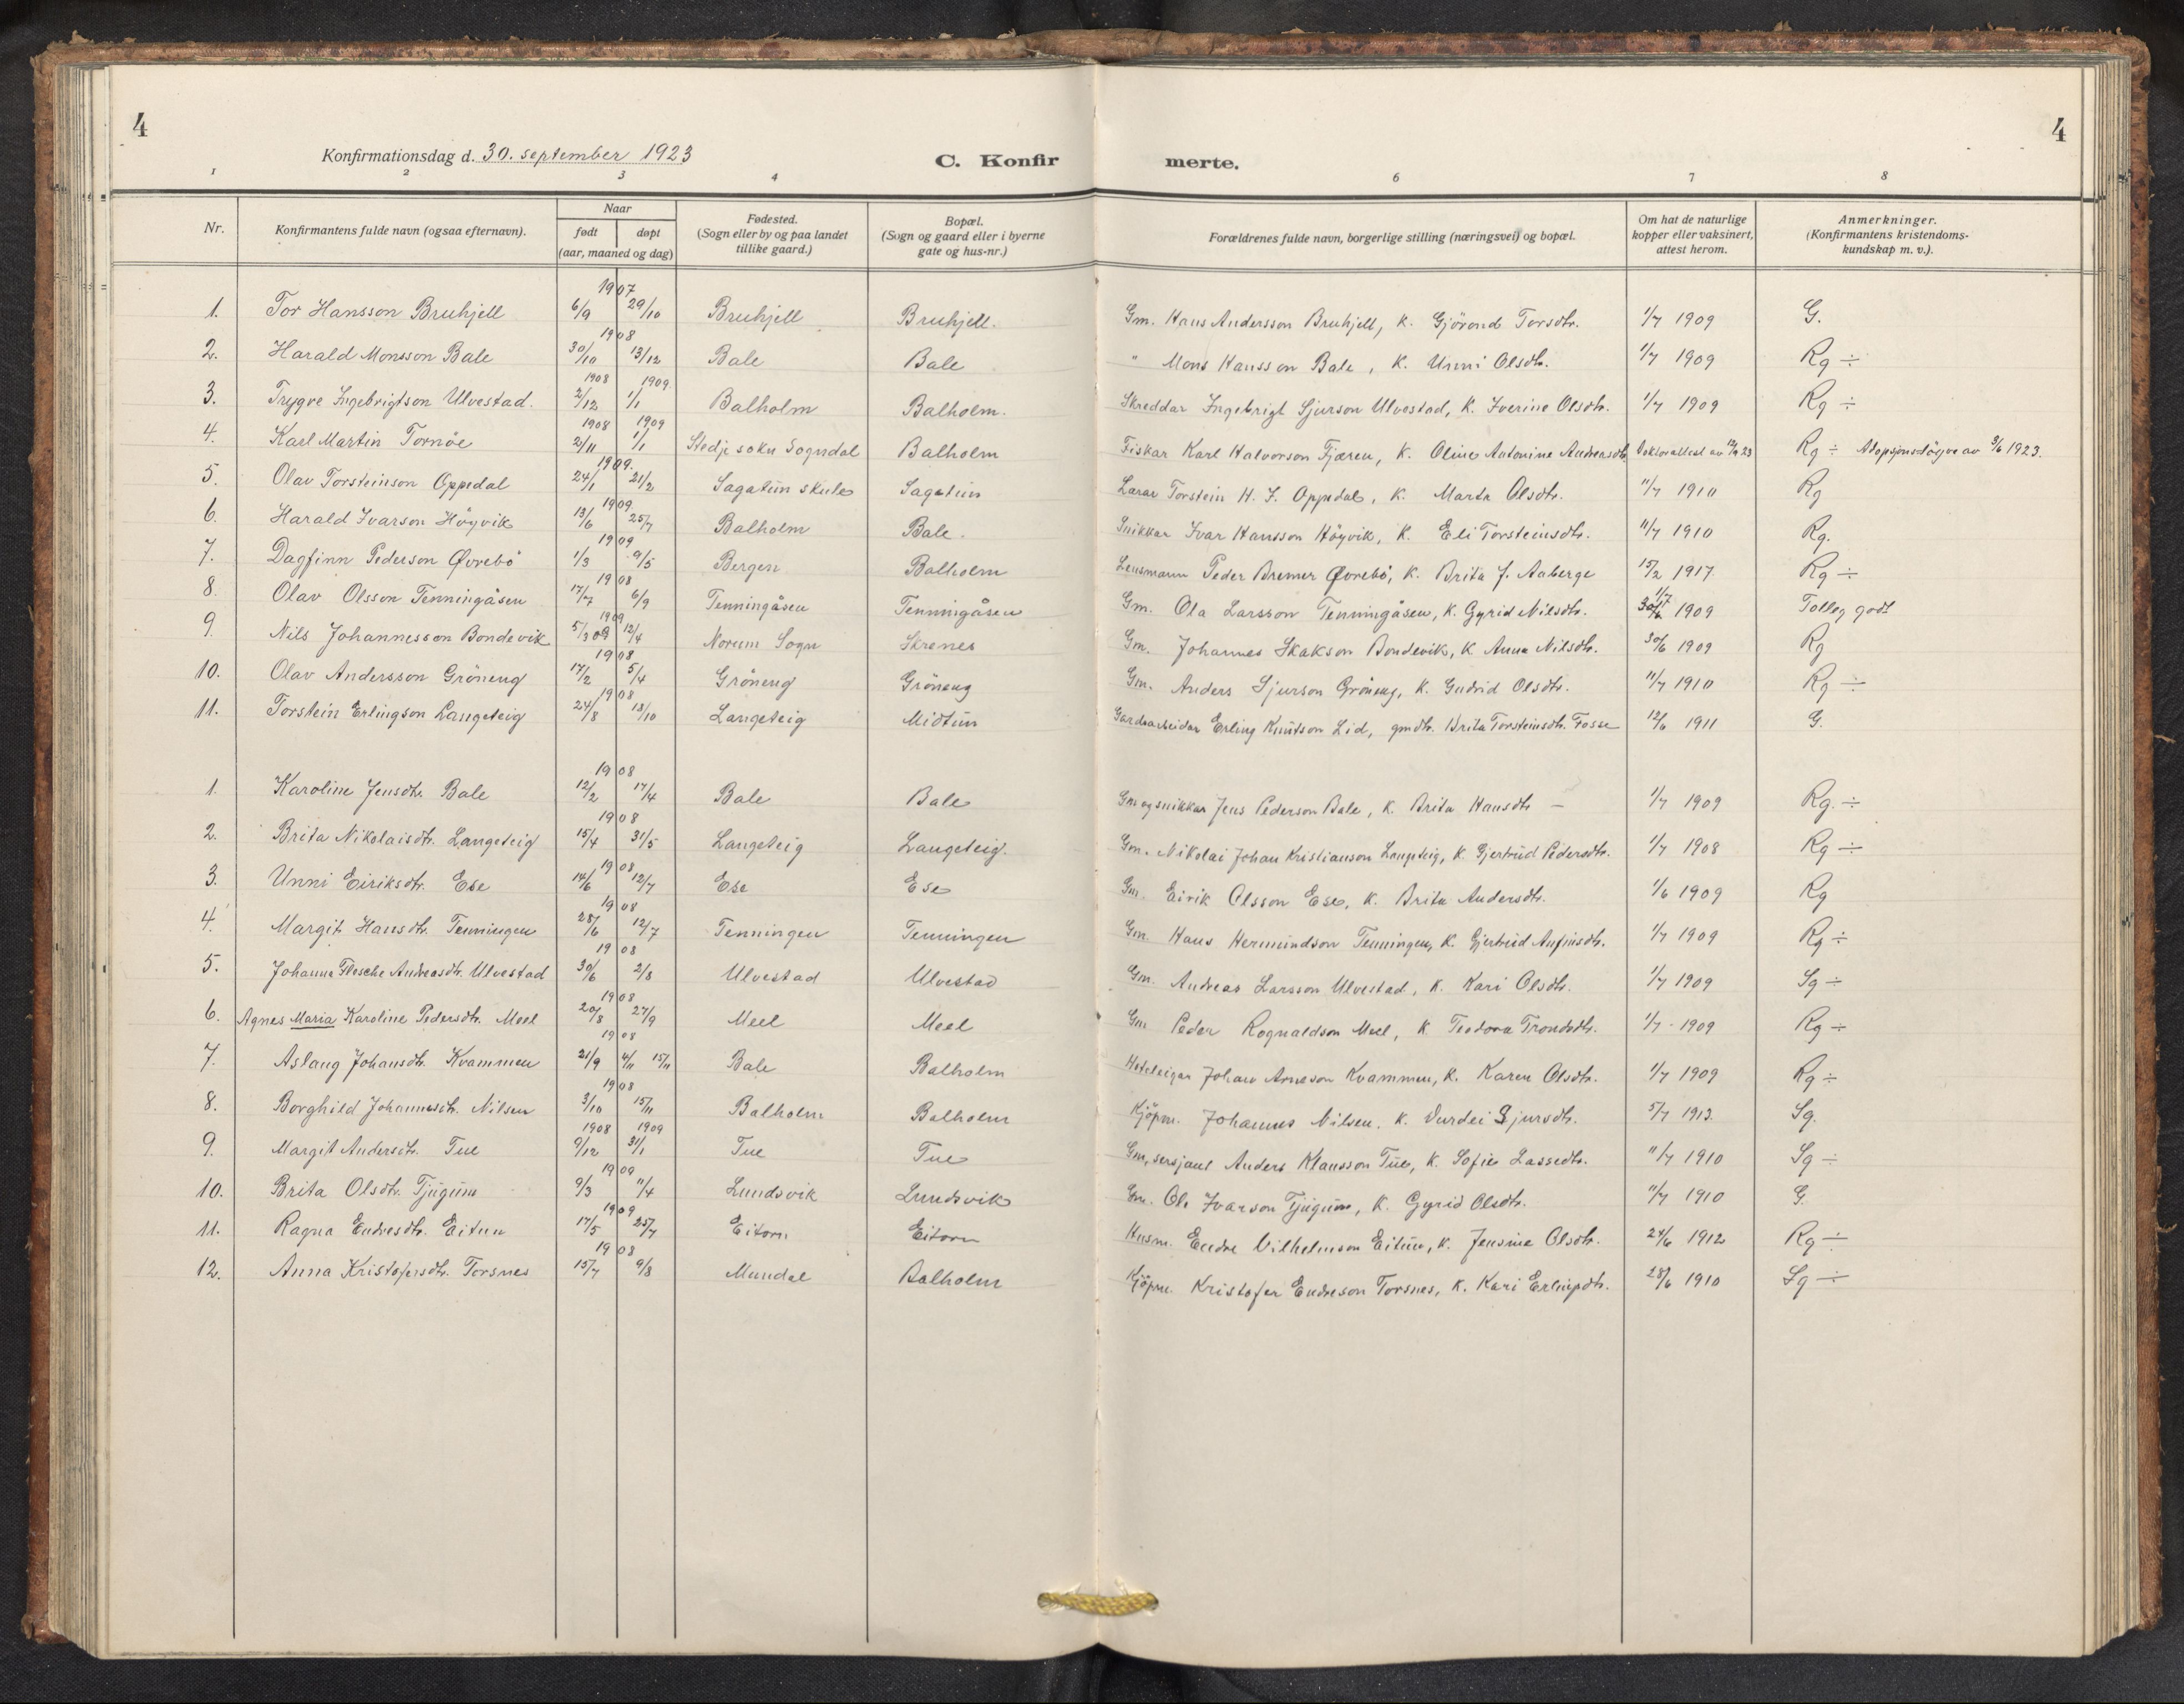 4 4
Konfirmationsdag d. 30. september 1923 C. Konfir merte.
1 2 3 4 6 7 8
Nr. Konfirmantens fulde navn (ogsaa efternavn). Naar født døpt (aar, maaned og dag) Fødested. (Sogn eller by og paa landet tillike gaard.) Bopæl. (Sogn og gaard eller i byerne gate og hus-nr.) Forældrenes fulde navn, borgerlige stilling (næringsvei) og bopæl. Om hat de naturlige kopper eller vaksinert, attest herom. Anmerkninger. (Konfirmantens kristendoms-kundskap m. v.).
1907
1. Tor Hansson Bruhjell 6/9 29/10 Bruhjell Bruhjell. Gm. Hans Andersson Bruhjell, K. Gjörond Torsdtr. 1/7 1909 G.
1908
2. Harald Monsson Bale 30/10 13/12 Bale Bale " Mons Hansson Bale, K. Unni Olsdtr. 1/7 1909 Rg ÷
1908 1909.
3. Trygve Ingebrigtson Ulvestad. 2/12 1/1 Balholm Balholm. Skreddar Ingebrigt Sjurson Ulvestad, K. Iverine Olsdtr. 1/7 1909 Rg ÷
1908 1909
4. Karl Martin Tornöe 2/11 1/1 Stedje sokn Sogndal Balholm Fiskar Karl Halvorson Fjæren, K. Oline Antonine Andreasdtr. Doktorattest av 12/9 23 Rg ÷ Adopsjonsløyve av 3/6 1923.
1909.
5. Olav Torsteinson Oppedal 24/1 21/2 Sagatun skule Sagatun Lærar Torstein H. S. Oppedal, K. Marta Olsdtr. 11/7 1910 Rg
1909
6. Harald Ivarson Höyvik 13/6 25/7 Balholm Bale. Snikkar Ivar Hansson Höyvik, K. Eli Torsteinsdtr. 11/7 1910 Rg.
1909
7. Dagfinn Pederson Øvrebö 1/3 9/5 Bergen Balholm Lensmann Peder Bremer Øvrebö, K. Brita J. Aaberge 15/2 1917. Rg ÷
1908
8. Olav Olsson Tenningåsen 17/7 6/9 Tenningåsen Tenningåsen Gm. Ola Larsson Tenningåsen, K. Gyrid Nilsdtr. 1/7 30/6 1909 Tolleg godt
1909
9. Nils Johannesson Bondevik 5/3 09 12/4 Norum Sogn Skrenes Gm. Johannes Skakson Bondevik, K. Anna Nilsdtr. 30/6 1909 Rg
1908
10. Olav Andersson Gröneng 17/2 5/4 Gröneng Gröneng Gm. Anders Sjurson Gröneng, K. Gudrid Olsdtr. 11/7 1910 Rg ÷
1908
11. Torstein Erlingson Langeteig 24/8 13/10 Langeteig Midtun Gardsarbeidar Erling Knutson Lid, gmdtr. Brita Torsteinsdtr. Fosse 12/6 1911 G.
1908
1. Karoline Jensdtr. Bale 12/2 17/4 Bale Bale Gm og snikkar Jens Pederson Bale, K. Brita Hansdtr — 1/7 1909 Rg. ÷
1908
2. Brita Nikolaisdtr. Langeteig 15/4 31/5 Langeteig Langeteig. Gm. Nikolai Johan Kristianson Langeteig, K. Gjertrud Pedersdtr. 1/7 1908 Rg ÷
1908
3. Unni Eiriksdtr. Ese 14/6 12/7 Ese Ese Gm. Eirik Olsson Ese, K. Brita Andersdtr. 1/6 1909 Rg
1908
4. Margit Hansdtr. Tenningen 28/6 12/7 Tenningen Tenningen Gm. Hans Hermundson Tenningen, K. Gjertrud Anfinsdtr. 1/7 1909 Rg ÷
1908
5. Johanna Flesche Andreasdtr. Ulvestad 30/6 2/8 Ulvestad Ulvestad Gm. Andreas Larsson Ulvestad, K. Kari Olsdtr. 1/7 1909 Sg ÷
1908
6. Agnes Maria Karoline Pedersdtr. Meel 20/8 27/9 Meel Meel Gm. Peder Rognaldson Meel, K Teodora Trondsdtr. 1/7 - 1909 Rg ÷
1908
7. Aslaug Johansdtr. Kvammen 21/9 4/11 15/11 Bale Balholm Hoteleigar Johan Arneson Kvammen, K. Karen Olsdtr. 1/7 1909 Rg ÷
1908
8. Borghild Johannesdtr. Nilsen 3/10 15/11 Balholm Balholm Kjöpm. Johannes Nilsen. K. Durdei Sjursdtr. 5/7 1913. Sg.
1908 1909
9. Margit Andersdtr. Tue 9/12 31/1 Tue Tue Gm, sersjant Anders Klausson Tue, K. Sofie Lassedtr. 11/7 1910 Sg ÷
1909
10. Brita Olsdtr. Tjugum 9/3 11/4 Lundsvik Lundsvik Gm. Ola Ivarson Tjugum, K. Gyrid Olsdtr. 11/7 1910 G.
1909
11. Ragna Endresdtr. Eitun 17/5 25/7 Eitorn Eitorn Husm. Endre Vilhelmson Eitun, K. Jensine Olsdtr. 24/6 1912 Rg ÷
1908
12. Anna Kristofersdtr. Torsnes 15/7 9/8 Mundal Balholm Kjöpm. Kristofer Endreson Torsnes, K. Kari Erlingsdtr. 28/6 1910 Sg ÷